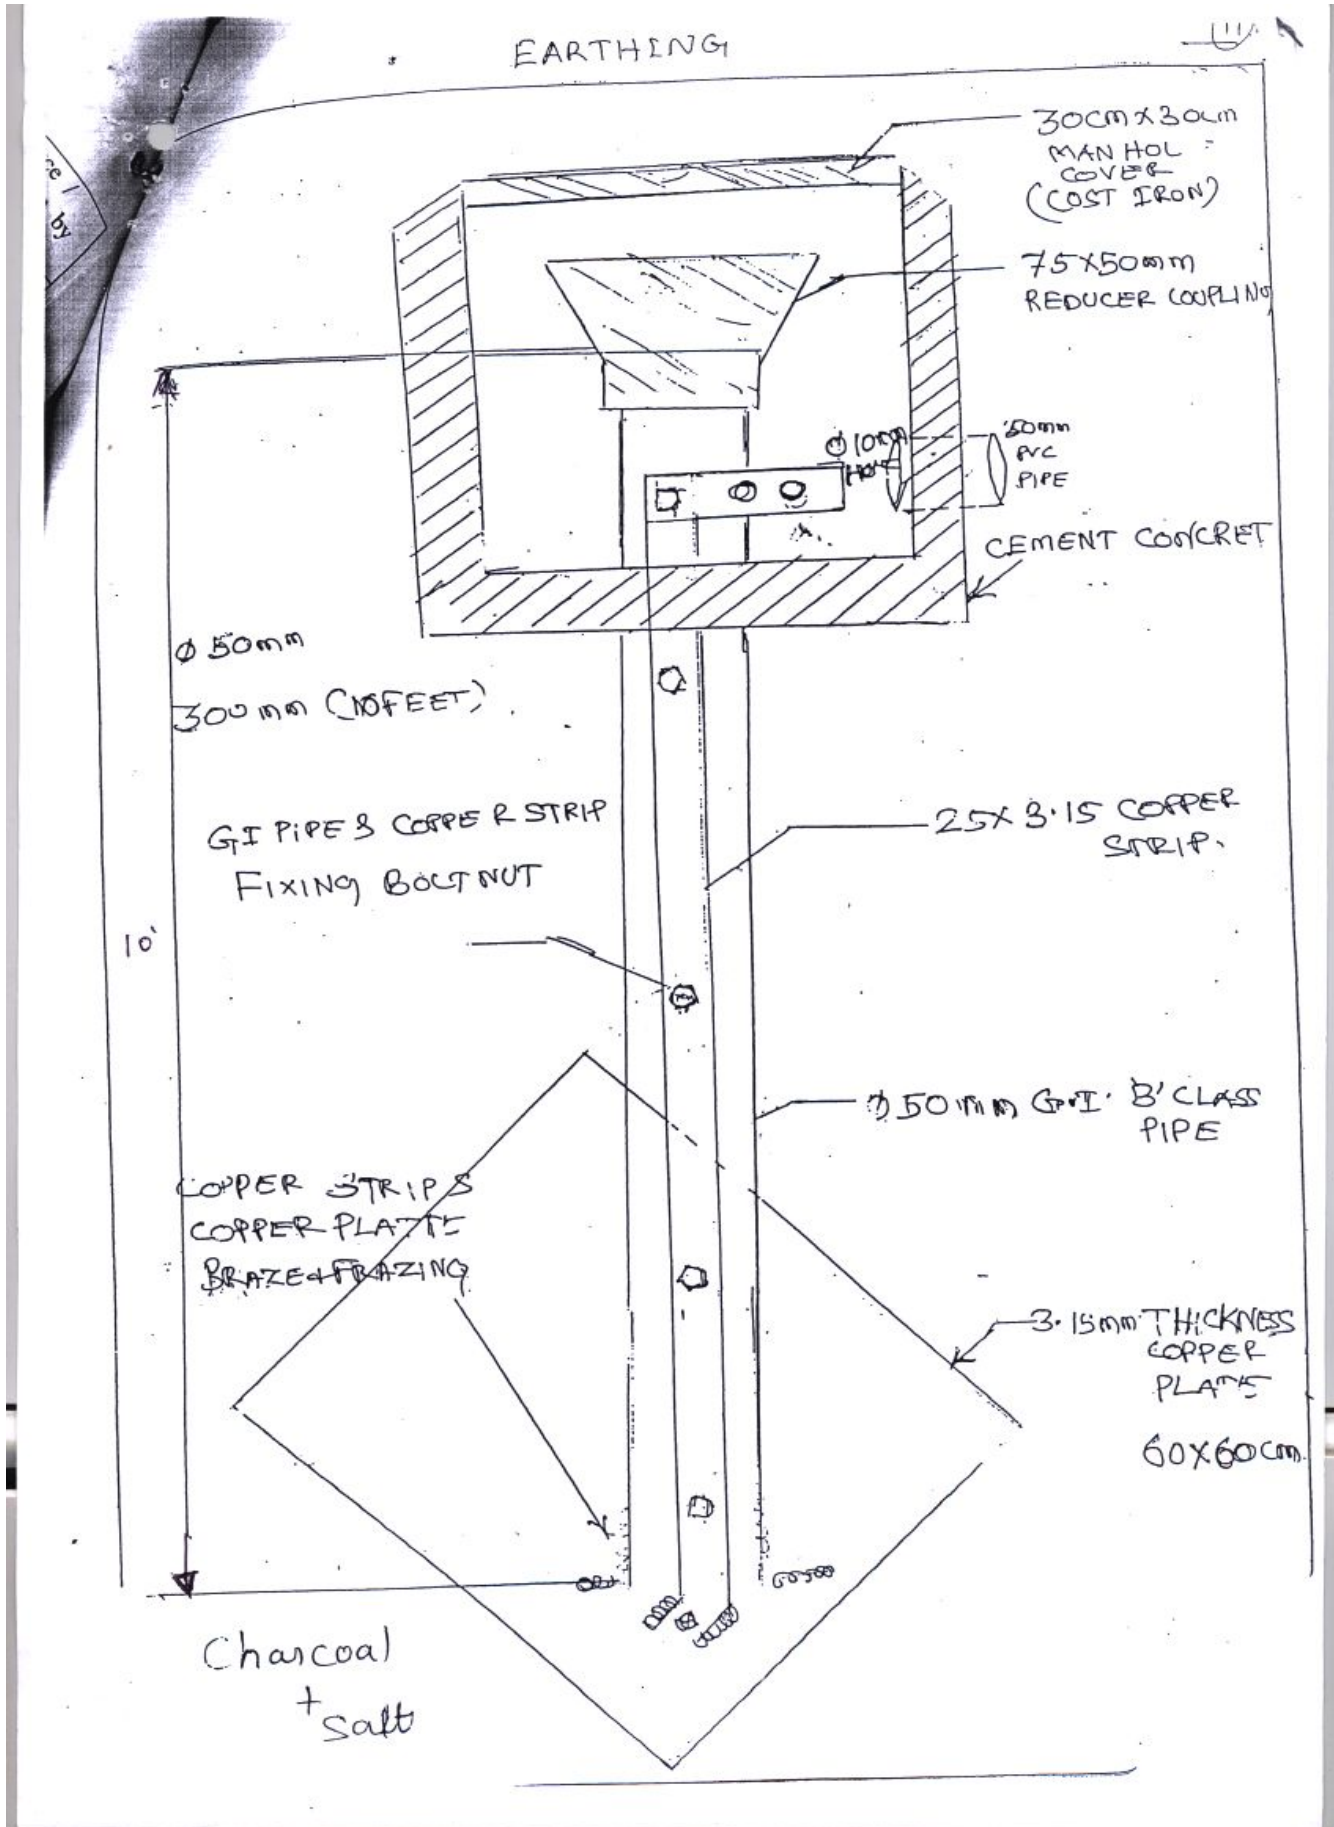 EARTHING
ce /
by
30cm x 30cm
MAN HOL
COVER
(COST IRON)
75X50mm
REDUCER COUPLING
Φ 10mm
50mm
PVC
PIPE
CEMENT CONCRET
Φ 50mm
300mm (10FEET)
GI PIPE & COPPER STRIP
FIXING BOLT NUT
25X3.15 COPPER
STRIP.
10'
Φ50mm G.I. 'B' CLASS
PIPE
COPPER STRIP &
COPPER PLATE
3.15mm THICKNESS
COPPER
PLATE
60X60cm
Charcoal
+
Salt